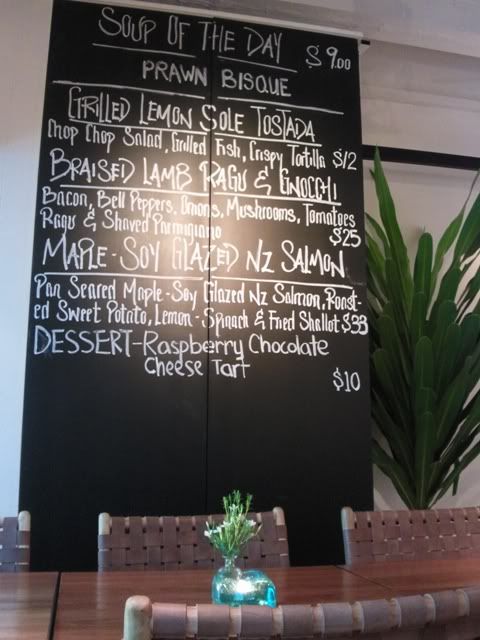 SOUP OF THE DAY $9.00
PRAWN BISQUE
GRILLED LEMON SOLE TOSTADA
Chop Chop Salad, Grilled Fish, Crispy Tortilla $12
BRAISED LAMB RAGU & GNOCCHI
Bacon, Bell Peppers, Onions, Mushrooms, Tomatoes
Ragu & Shaved Parmigiano
$25
MAPLE-SOY GLAZED NZ SALMON
Pan Seared Maple-Soy Glazed NZ Salmon, Roast-
ed Sweet Potato, Lemon-Spinach & Fried Shallot $33
DESSERT-Raspberry Chocolate
Cheese Tart
$10